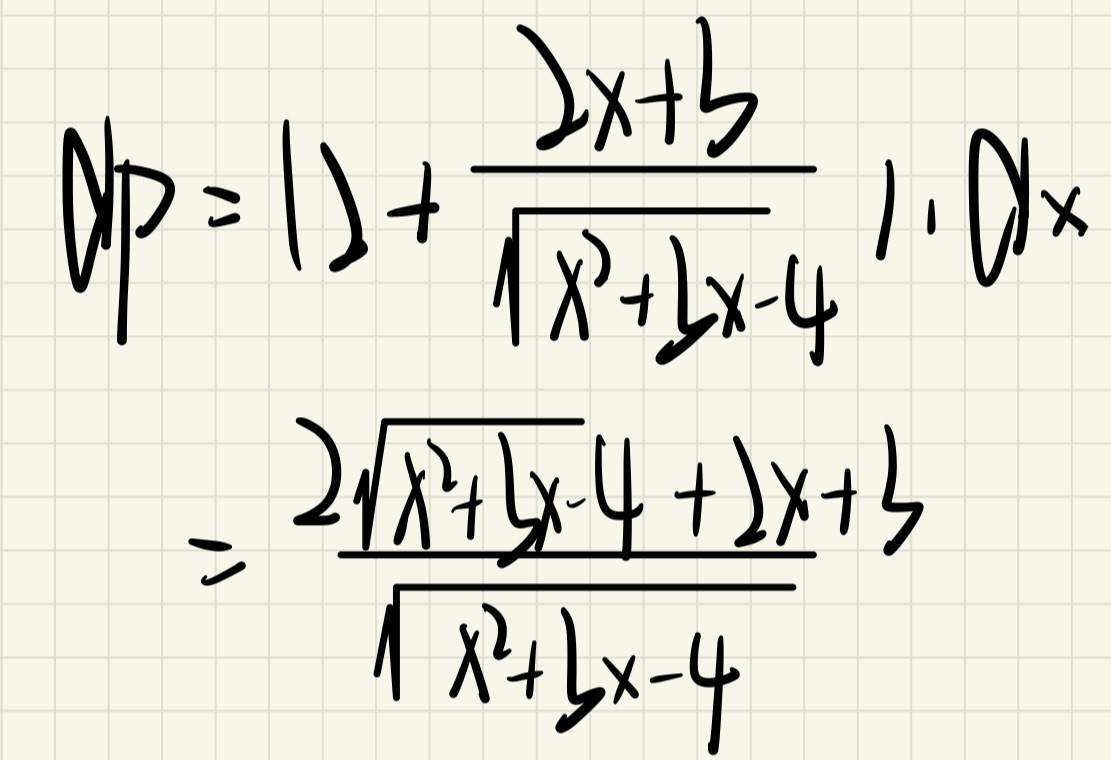 dp = (2 + \frac{2x+3}{\sqrt{x^2+3x-4}}) · dx
= \frac{2\sqrt{x^2+3x-4} + 2x+3}{\sqrt{x^2+3x-4}}